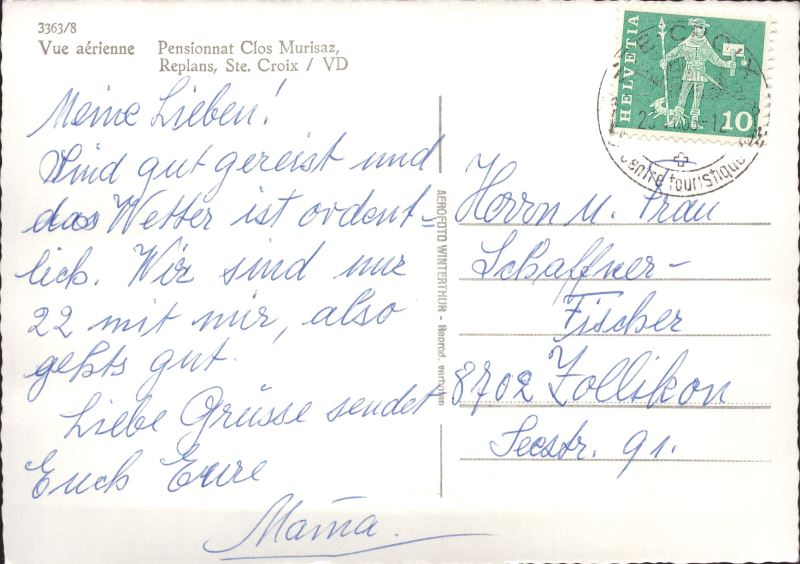 3363/8
Vue aérienne Pensionnat Clos Murisaz,
Replans, Ste. Croix / VD
Meine Lieben!
Sind gut gereist und
das Wetter ist ordent-
lich. Wir sind nur
22 mit mir, also
gehts gut.
Liebe Grüsse sendet
Euch Eure
Mama.
AEROFOTO WINTERTHUR - Reprod. verboten
HELVETIA
10
STE CROIX
-12
Centre touristique
Herrn u. Frau
Schaffner-
Fischer
8702 Zollikon
Seestr. 91.